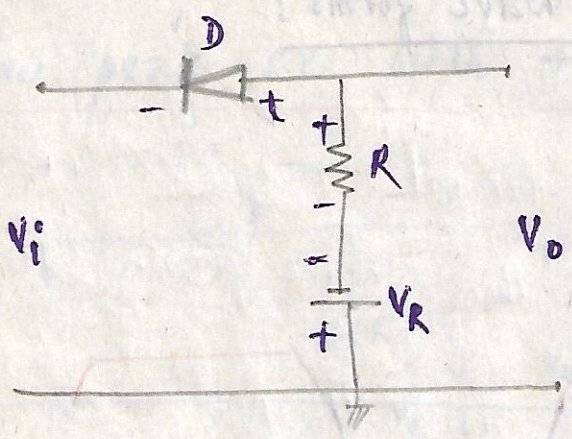 D
- +
+
R
-
Vi
Vo
-
VR
+